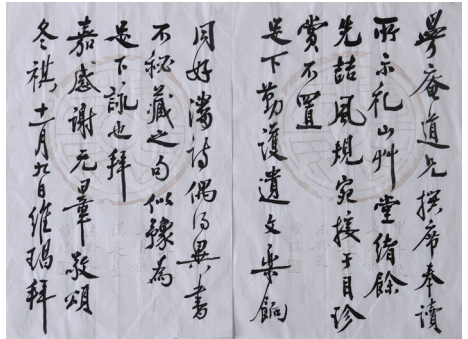 學庵道兄撰席奉讀
所示礼山艸堂緒餘
先喆風規宛接于目珍
賞不置
足下勤護遺文樂餉
同好潘詩偶得異書
不秘藏之句似豫為
足下詠也拜
嘉感謝元畢敬頌
冬祺十一月九日維瑒拜